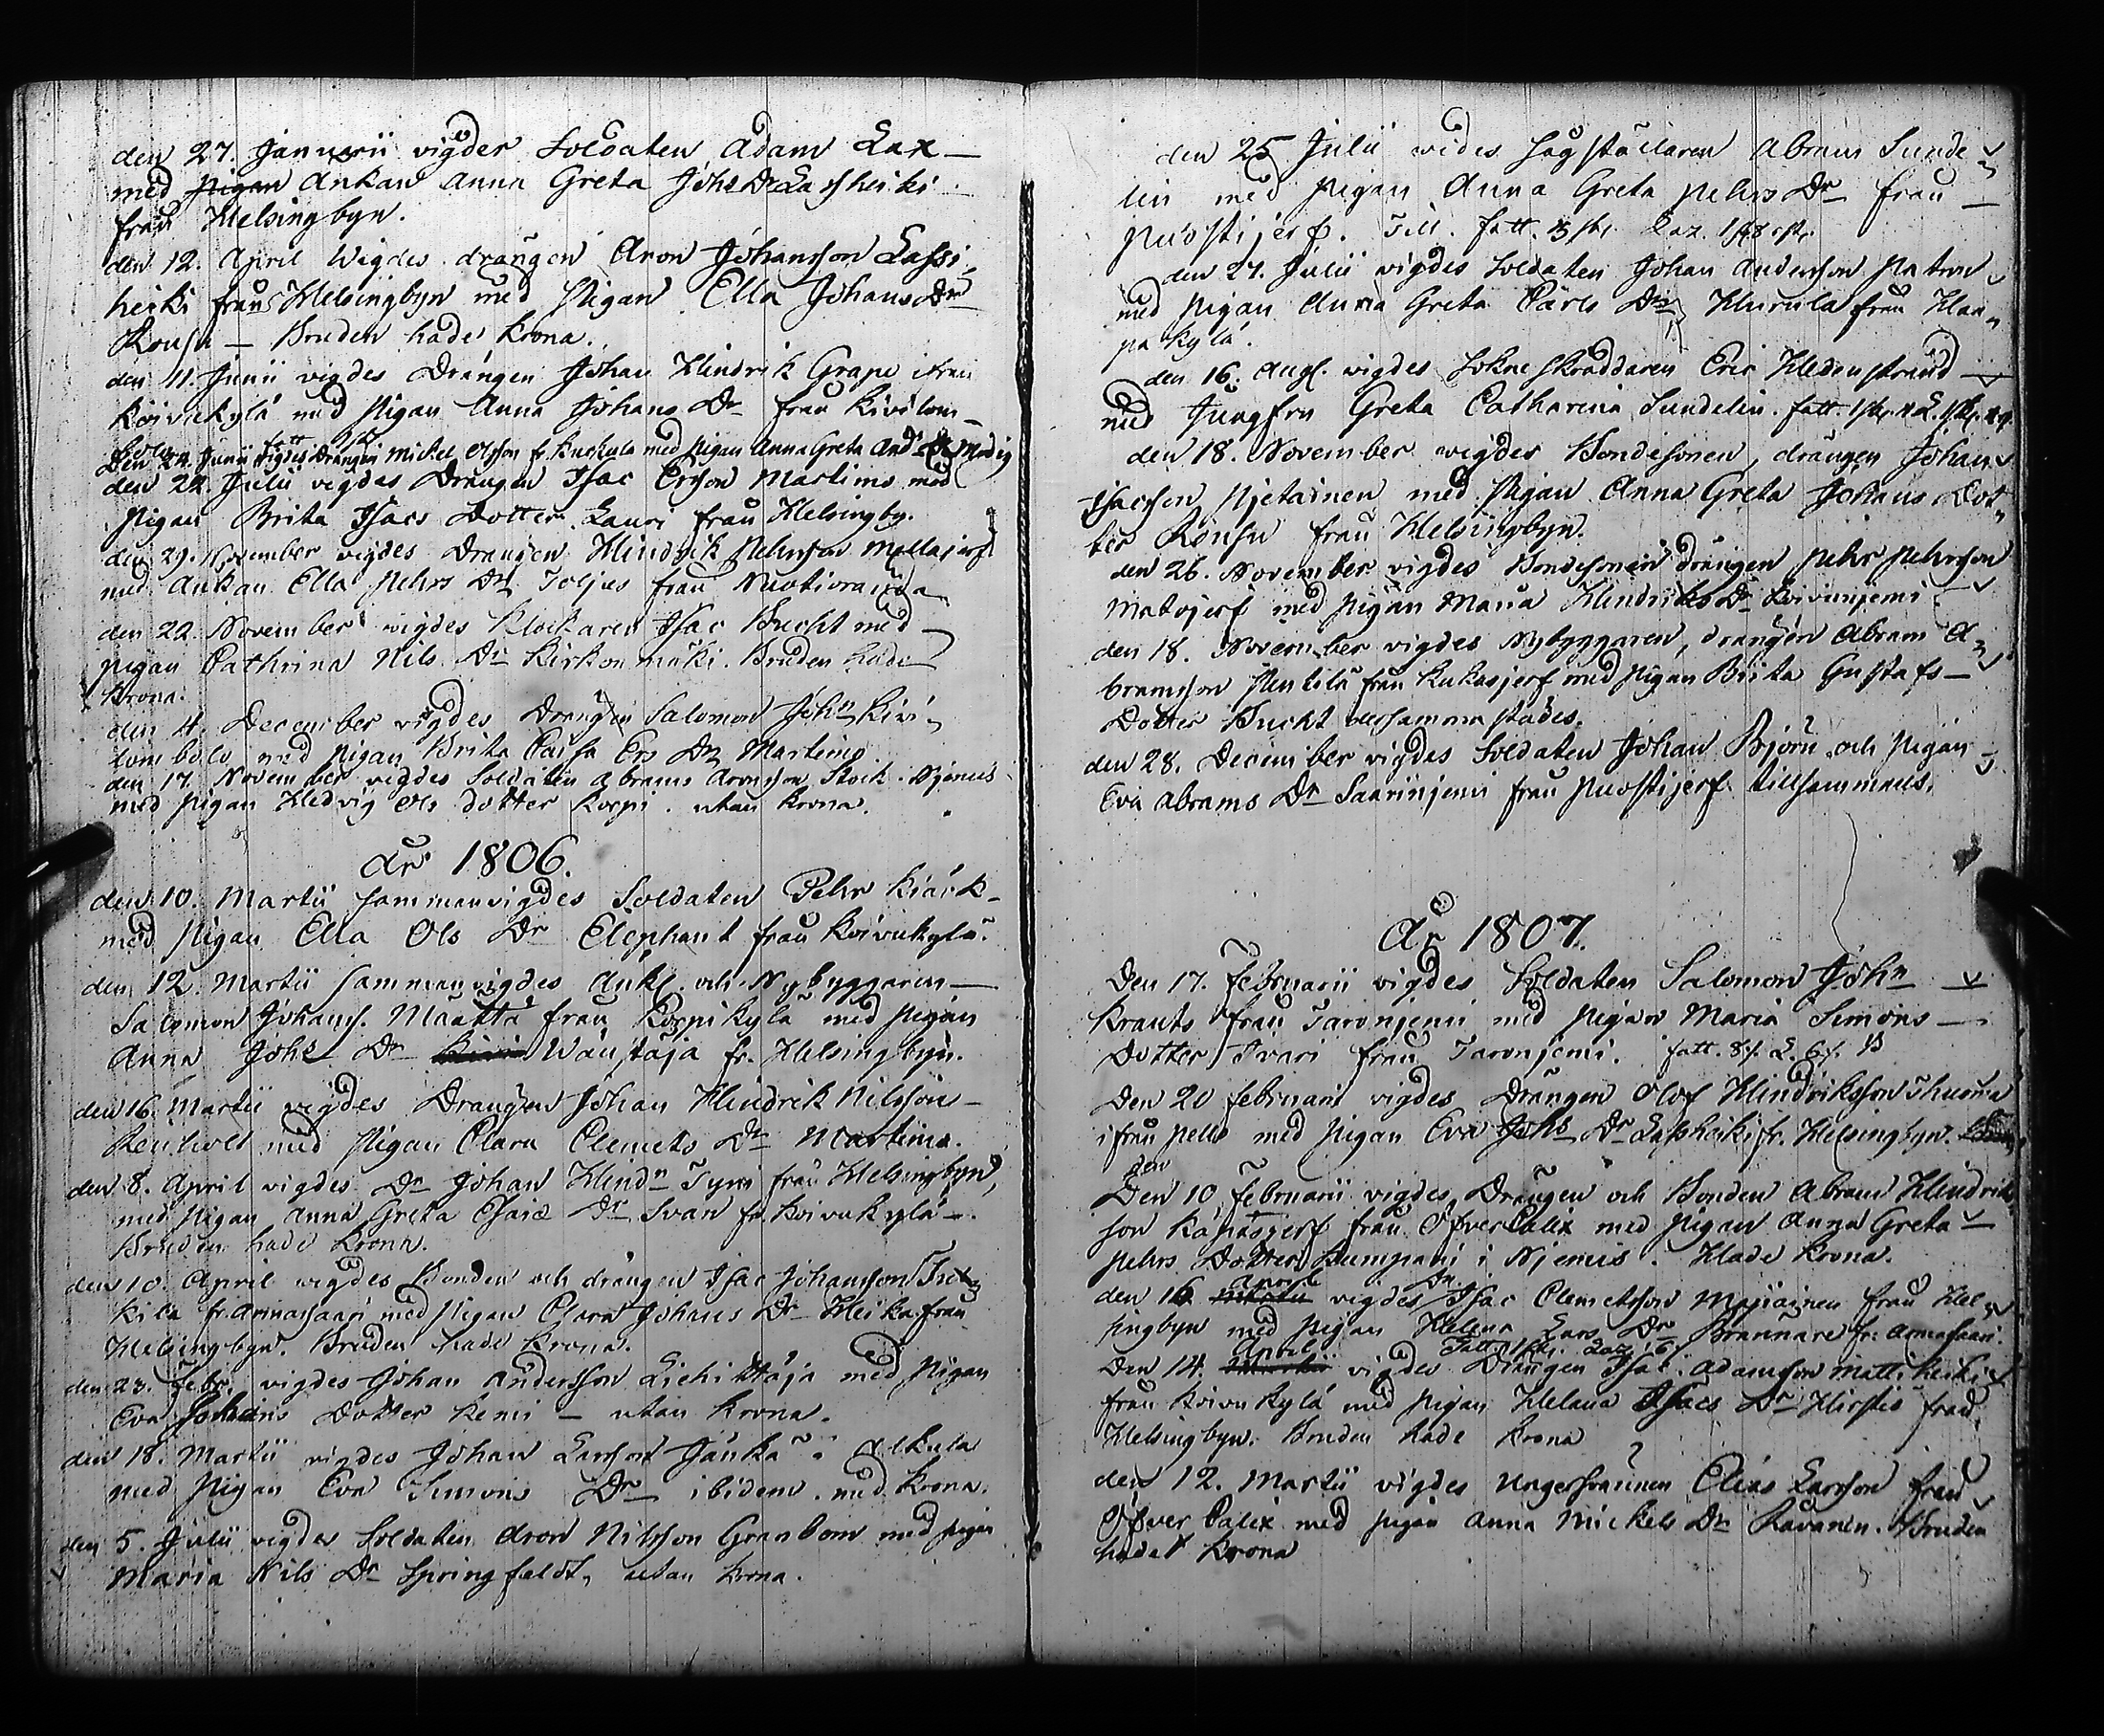 den 27. Januarii vigdes Soldaten Adam Lax
med Pigan Änkan Anna Greta Johs Dr Lassheiki
från Helsingbyn.
den 12. April Wigdes drängen Aron Johansson Lassi
heiki från Helsingbyn med Pigan Ella Johans Dr
Rousu — Bruden hade krona.
den 11. Junii vigdes Drängen Johan Hindrik Grape ifrån
Koivukylä med Pigan Anna Johans Dr från Kivilom-
bolo.
Den 24. Junii vigdes Drängen Mickel Olsson fr. Kuckula med Pigan Anna Greta And. Dr Modig
den 24. Julii vigdes Drängen Isac Ersson Martimo med
Pigan Brita Isacs Dotter Lauri från Helsingby.
den 29. November vigdes Drängen Hindrik Pehrsson Mellajerf
med Änkan Ella Pehrs Dr Toljus från Nuotioranda
den 22. November vigdes Klockaren Isac Bucht med
Pigan Cathrina Nils Dr Kirkonmäki. Bruden hade
Krona.
den 4. December vigdes Drängen Salomon John Kivi
lombolo med Pigan Brita Caisa Ers Dr Martimo.
den 17. November vigdes Soldaten Abram Aronsson Stock. Njemis
med Pigan Hedvig Ols dotter Korpi. utan krona.
år 1806.
den 10. Martii sammanvigdes Soldaten Pehr Kiäck
med Pigan Ella Ols Dr Elephant från Koivukylä.
den 12. Martii sammanvigdes Änkl. och Nybyggaren
Salomon Johans. Määttä från Korpikylä med Pigan
Anna Johs Dr Wänstäja fr. Helsingbyn.
den 16. Martii vigdes Drängen Johan Hindrik Nilsson
Reinholt med Pigan Clara Clemets Dr Martimo.
den 8. April vigdes Dr Johan Hindn Tyni från Helsingbyn,
med Pigan Anna Greta Esaiæ Dr Svan fr. Koivukylä.
Bruden hade Krona.
den 10. April vigdes Bonden och drängen Isac Johansson
kila fr. Armassaari med Pigan Clara Johans Dr Heika från
Helsingbyn. Bruden hade Krona.
den 23. Febr. vigdes Johan Andersson Liehittäjä med Pigan
Eva Johans Dotter Kemi — utan krona.
den 18. Martii vigdes Johan Larsson Jänkä i Alkula
med Pigan Eva Simons Dr ibidem. med Krona.
den 5. Julii vigdes Soldaten Aron Nilsson Granbom med pigan
Maria Nils Dr Springfeldt, utan krona.
den 25 Julii vides Sågställaren Abram Sunde
lin med Pigan Anna Greta Pehrs Dr från
Puostijerf. Till. fatt.
den 27. Julii vigdes Soldaten Johan Andersson Patron
med Pigan Anna Greta Carls Dr Hurula från Haa
pakylä.
den 16. Aug. vigdes Sokneskräddaren Eric Hedenstrand
med Jungfru Greta Catharina Sundelin. fatt.
den 18. November vigdes Bondesonen, drängen Johan
Isacsson Pjetainen med Pigan Anna Greta Johans Dot
ter Rousu från Helsingbyn.
den 26. November vigdes Bondesonen drängen Pehr Pehrsson
Matojerf med Pigan Maria Hindriks Dr Koivunjemi
den 18. November vigdes Nybyggaren, drängen Abram A
bramsson från Kukasjerf med Pigan Brita Gustafs
Dotter Bucht dersammastädes.
den 28. December vigdes Soldaten Johan Björn och Pigan
Eva Abrams Dr Saarinjemi från Puostijerf. tillsammans.
År 1807.
Den 17. Februarii vigdes Soldaten Salomon John
Krants från Taronjemi med Pigan Maria Simons
Dotter Ivari från Taronjemi. fatt.
Den 20 februarii vigdes Drängen Olof Hindriksson Thuoria
ifrån Pello med Pigan Eva Johs Dr Lassheiki fr. Helsingbyn.
den
Den 10 februarii vigdes Drängen och Bonden Abram Hindriks
son Kapasjerf från ÖfverCalix med Pigan Anna Greta
Pehrs Dotter Kumpani i Njemis. Hade krona.
den 16. Martii April vigdes Dr. Isac Clemetsson Majiainen från Hel
singbyn med Pigan Helena Lars Dr Brännare fr. Armassaari.
Den 14. Martii April vigdes Drängen Isac Adamsson Mattiheiki
från Koivukylä med Pigan Helena Isacs Dr Hirstio från
Helsingbyn. Bruden hade krona
den 12. Martii vigdes Ungersvännen Elias Larsson från
Öfver Calix med Pigan Anna Mickels Dr Ravanen. Bruden
hade krona